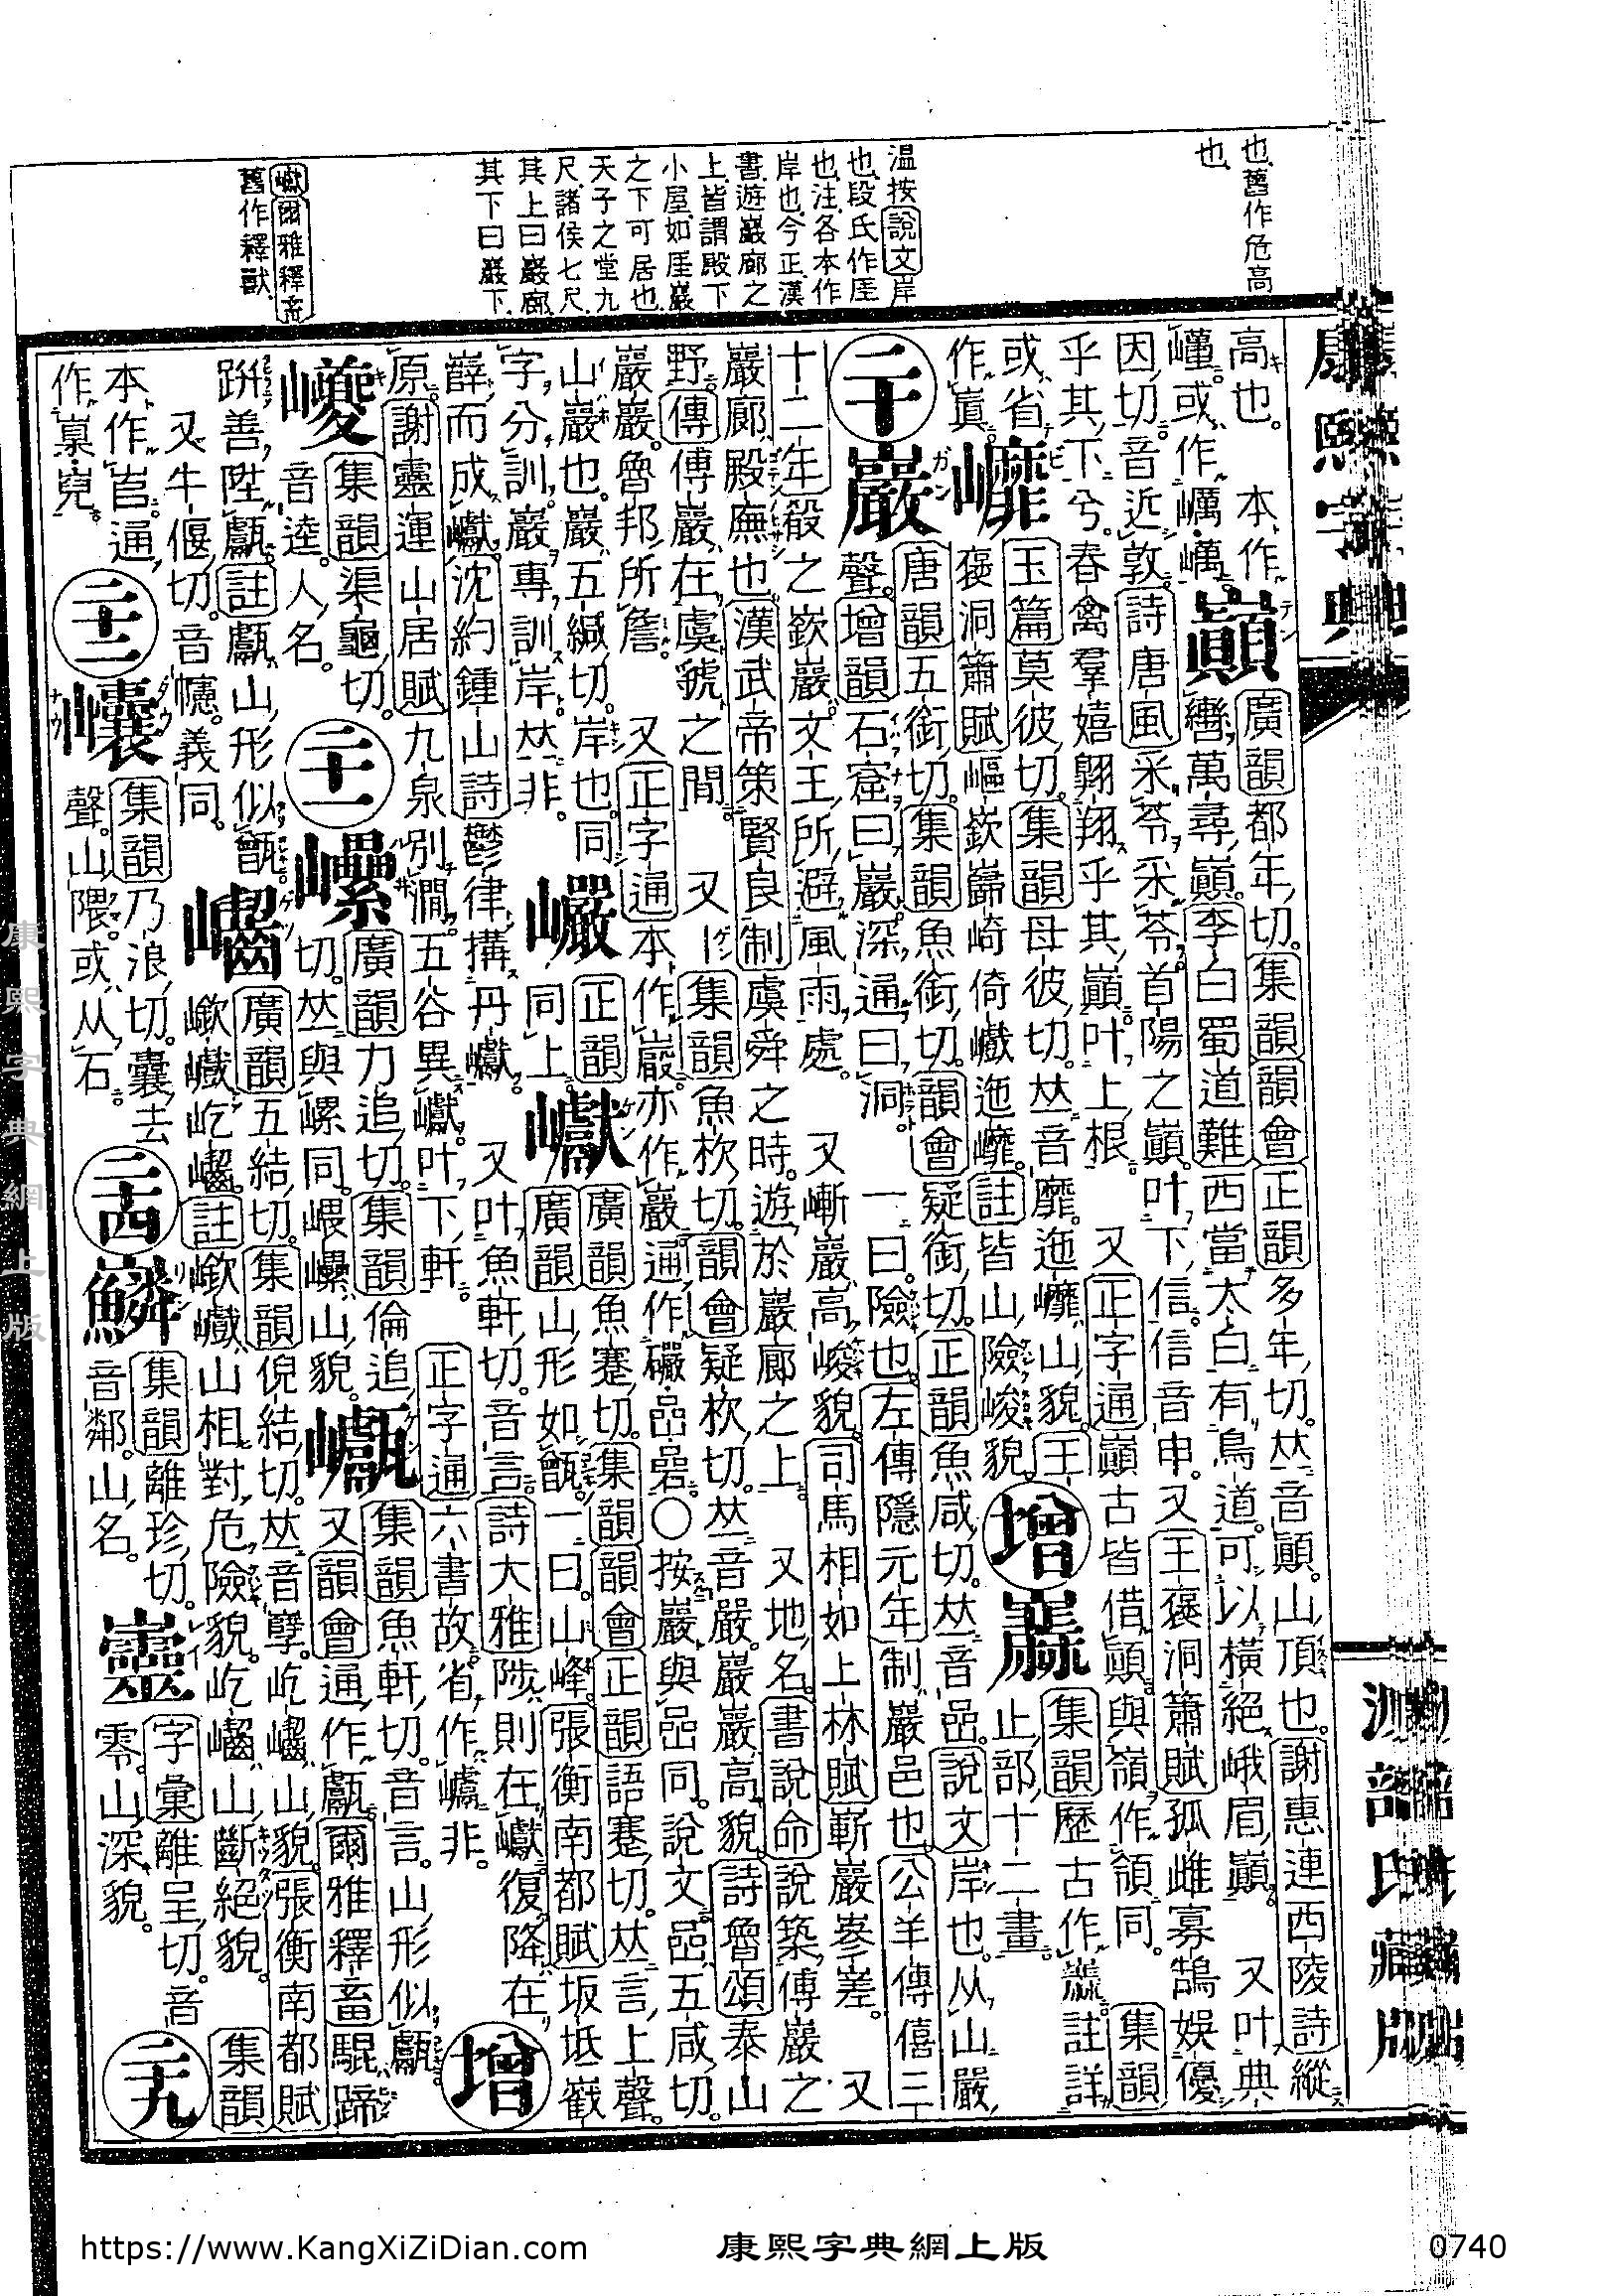 也。舊作危高
也。
温按說文岸
也。段氏作厓
也。注。各本作
岸也。今正。漢
書。遊巖廊之
上。皆謂殿下
小屋。如厓巖
之下可居也。
天子之堂九
尺。諸侯七尺。
其上曰巖廊。
其下曰巖下。
巘爾雅釋畜
舊作釋獸。
康熙字典
高也。 本作
巏。或作巁巁。
巔
廣韻都年切。集韻韻會正韻多年切。𠀤音顚。山頂也。謝惠連西陵詩縱
轡萬尋巔。李白蜀道難西當太白有鳥道。可以橫絕峨眉巔。 又叶典
因切。音近敦。詩唐風采苓采苓首陽之巔。叶下信。信音申。又王褒洞簫賦孤雌寡鵠娛優
乎其下兮。春禽羣嬉翺翔乎其巔。叶上根。 又正字通巔古皆借顚。與嶺作領同。 集韻
或省
作嵮。
玉篇莫彼切。集韻母彼切。𠀤音靡。迆 山貌。王
褒洞簫賦嶇嶔巋崎倚巇迆 。註皆山險峻貌。
增
集韻歷古作 註詳
止部十二畫。
二十
巖
唐韻五銜切。集韻魚銜切。韻會疑銜切。正韻魚咸切。𠀤音嵒。說文岸也。从山嚴
聲。增韻石窟曰巖。深通曰洞。 一曰險也。左傳隱元年制巖邑也。公羊傳僖三
十二年殽之嶔巖文王所避風雨處。 又嶃巖高峻貌。司馬相如上林賦嶄巖嵾差。 又
巖廊殿廡也。漢武帝策賢良制虞舜之時。遊於巖廊之上。 又地名。書說命說築傅巖之
野。傳傅巖在虞虢之間。 又集韻魚杴切。韻會疑杴切。𠀤音嚴。巖巖高貌。詩魯頌泰山
巖巖。魯邦所詹。 又正字通本作巖。亦作巖。通作礹嵒碞。○按巖與嵒同。說文嵒五咸切。
山巖也。巖五緘切。岸也。同
字分訓。巖專訓岸𠀤非。
巗
正韻
同上。
巘
廣韻魚蹇切。集韻韻會正韻語蹇切。𠀤言上聲。
廣韻山形如甑。一曰山峰。張衡南都賦坂坻巀
嶭而成巘。沈約鍾山詩鬱律搆丹巘。 又叶魚軒切。音言。詩大雅陟則在巘復降在
原。謝靈運山居賦九泉別澗。五谷異巘。叶下軒。 正字通六書故。省作 非。
增
集韻渠龜切。
音逵。人名。
二十一
㠥
廣韻力追切。集韻倫追
切。𠀤與㟪同。㟪㠥山貌。
集韻魚軒切。音言。山形似甗。
又韻會通作甗。爾雅釋畜騉蹄
趼善陞甗。註甗山形似甑。
又牛偃切。音巘。義同。
廣韻五結切。集韻倪結切。𠀤音孽。屹 山貌。張衡南都賦
嶔巇屹 。註嶔巇山相對危險貌。屹 山斷絕貌。 集韻
本作 通
作 。
二十二
集韻乃浪切。囊去
聲。山隈。或从石。
二十四
集韻離珍切。
音鄰。山名。
字彙離呈切。音
零。山深貌。
二十九
康熙字典網上版
https://www.KangXiZiDian.com
康熙字典網上版
0740